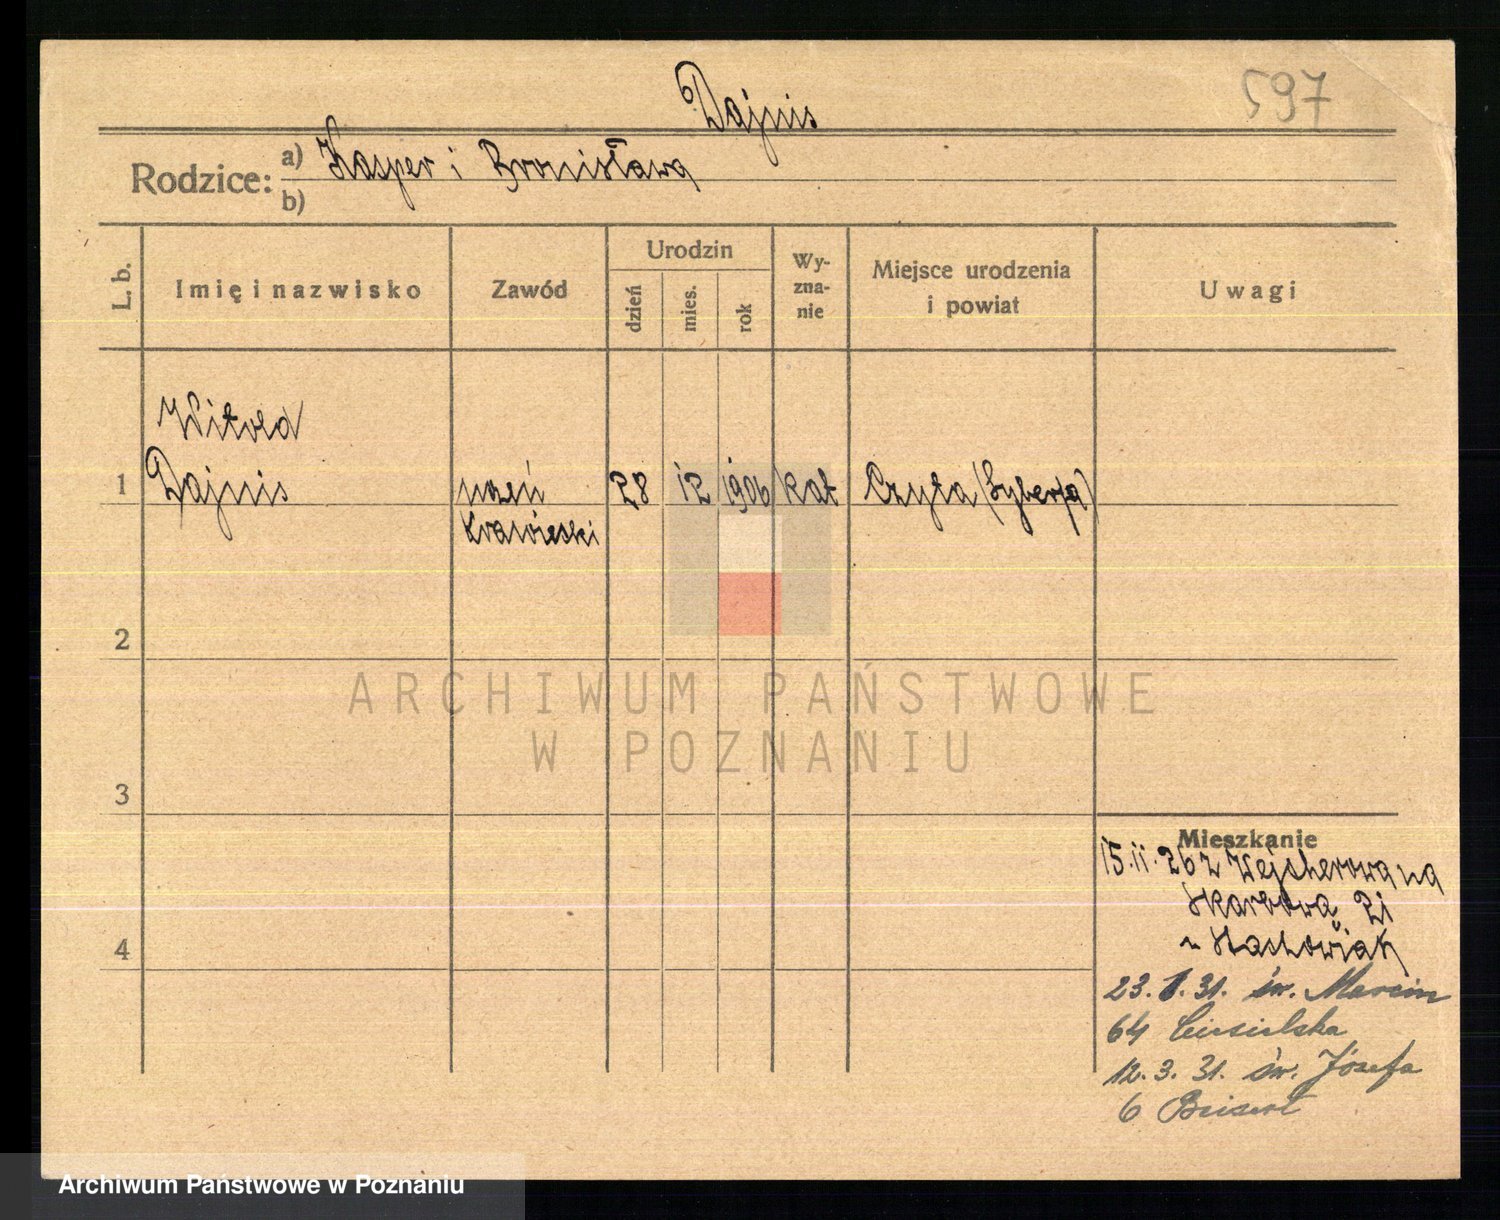 Dajnis
597
Rodzice:
a) Kasper i Bronisława
b)
L. b.
Imię i nazwisko
Zawód
Urodzin
dzień
mies.
rok
Wy-
zna-
nie
Miejsce urodzenia
i powiat
Uwagi
Witold
1 Dajnis uczeń 28 12 1906 kat Czyta (Syberja)
krawiecki
2
3
4
ARCHIWUM PAŃSTWOWE
W POZNANIU
Mieszkanie
15.11.26 z Wejcherowa na
Skarbową 21
u Stachowiak
23.1.31. św. Marcin
64 Ciesielska
12.3.31. św. Józefa
6
Archiwum Państwowe w Poznaniu